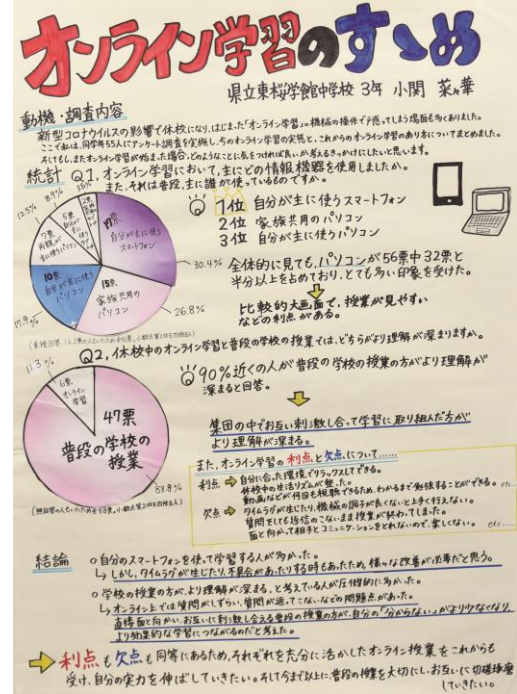 オンライン学習のすゝめ
県立東桜学館中学校 3年 小関 菜々華
動機・調査内容
新型コロナウイルスの影響で休校になり、はじまった「オンライン学習」。機械の操作で戸惑ってしまう場面も多くありました。
ここで私は、同学年55人にアンケート調査を実施し、今のオンライン学習の実態と、これからのオンライン学習のあり方についてまとめました。
そしてもし、またオンライン学習が始まった場合、どのようなことに気をつければ良いか考えるきっかけにしたいと思います。
統計 Q1, オンライン学習において、主にどの情報機器を使用しましたか。
また、それは普段、主に誰が使っているものですか。
1位 自分が主に使うスマートフォン
2位 家族共用のパソコン
3位 自分が主に使うパソコン
12.5%
8.9%
17票
自分が主に使う
スマートフォン
30.4%
15票
家族共用の
パソコン
26.8%
10票
自分が主に使う
パソコン
17.9%
7票
両親が
主に使うパソコン
5票
全体的に見ても、パソコンが56票中32票と
半分以上を占めており、とても多い印象を受けた。
比較的大画面で、授業が見やすい
などの利点がある。
Q2, 休校中のオンライン学習と普段の学校の授業では、どちらがより理解が深まりますか。
11.3%
6票
オンライン
学習
47票
普段の学校の
授業
88.8%
90%近くの人が普段の学校の授業の方がより理解が
深まると回答。
集団の中でお互い刺激し合って学習に取り組んだ方が
より理解が深まる。
また、オンライン学習の利点と欠点について……
利点 自分に合った環境でリラックスしてできる。
休校中の生活リズムが整った。
動画などが何回も視聴できるため、わかるまで勉強することができる。 etc…
欠点 タイムラグが生じたり、機械の調子が良くないと上手く行えない。
質問をしても返信のこないまま授業が終わってしまった。
面と向かって相手とコミュニケーションをとれないので、楽しくない。 etc…
結論 ○自分のスマートフォンを使って学習する人が多かった。
しかし、タイムラグが生じたり、不具合があったりする時もあるため、様々な改善が必要だと思う。
○学校の授業の方が、より理解が深まる、と考えている人が圧倒的に多かった。
オンライン上では質問がしずらい、質問が返ってこないなどの問題点があった。
直接面と向かい、お互いに刺激し合える普段の授業の方が、自分の「分からない」がより少なくなり、
より効果的な学習につながるのだと考えた。
利点も欠点も同等にあるため、それぞれを充分に活かしたオンライン授業をこれからも
受け、自分の実力を伸ばしていきたい。そして今まで以上に普段の授業を大切にし、お互いに切磋琢磨
していきたい。